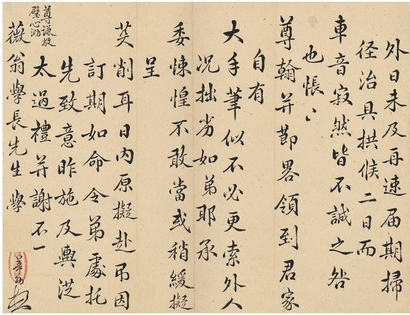 外日未及再速届期掃
径治具拱候二日而
車音寂然皆不誠之咎
也悵〻
尊翰并節畧領到君家
自有
大手筆似不必更索外人
况拙劣如弟耶承
委悚惶不敢當或稍緩擬
呈
笑削耳日内原擬赴吊因
訂期如命令弟處托
先致意昨施及輿従
太過禮并謝不一
薇翁學長先生 學
尊謙敬
璧心泐